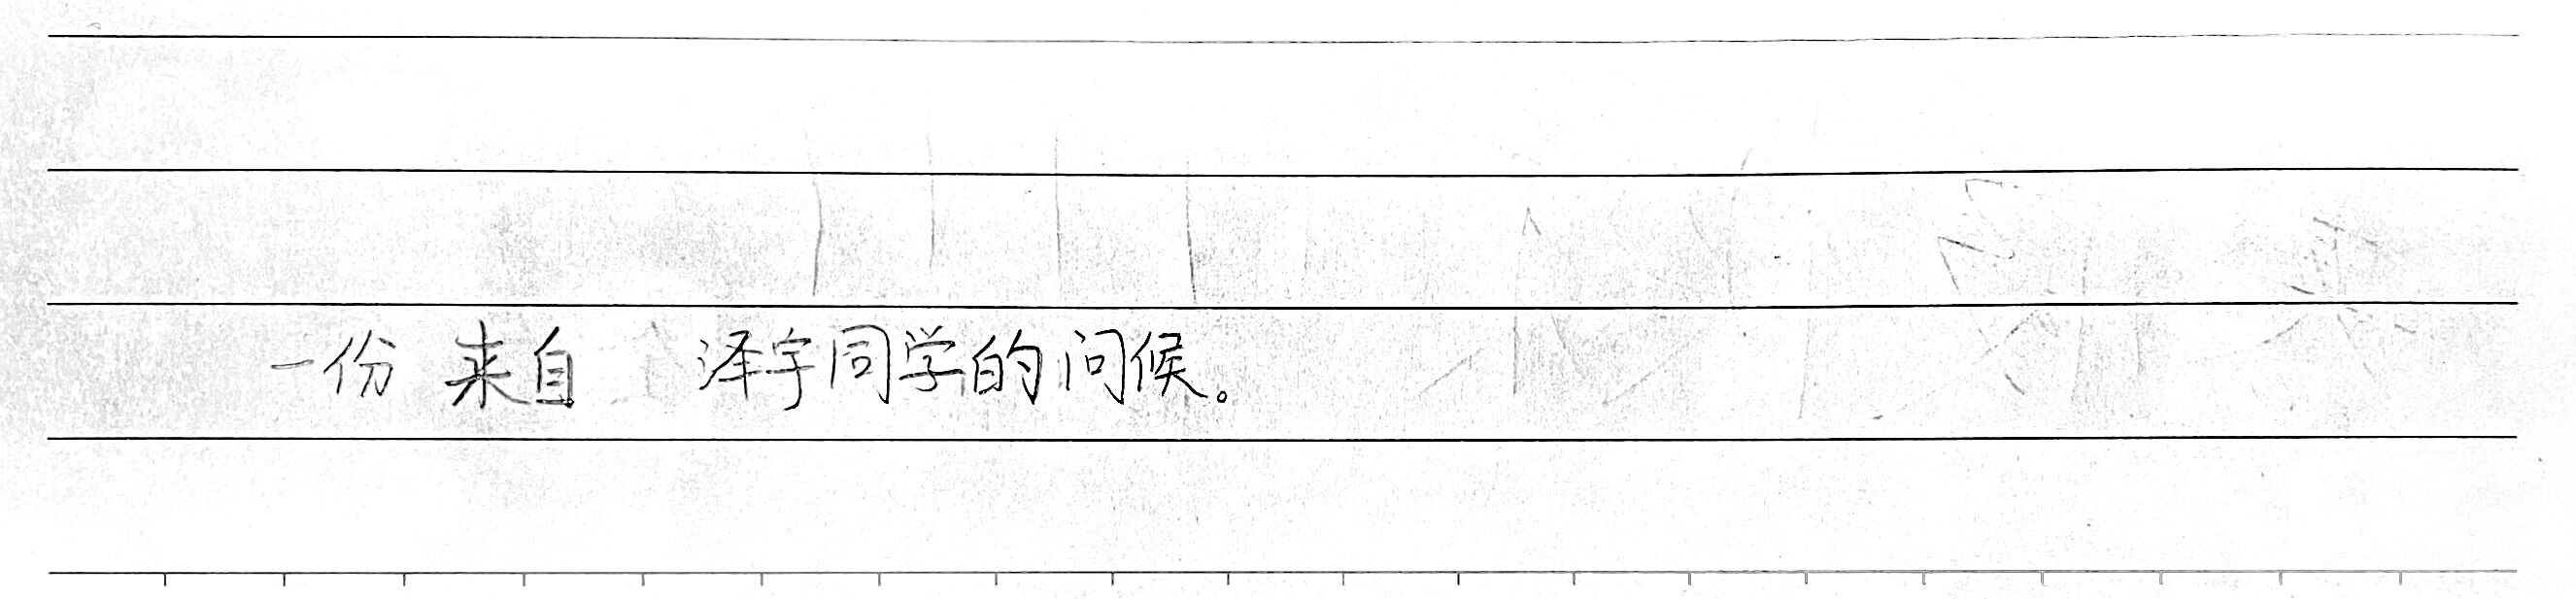 一份 来自 泽宇同学的问候。